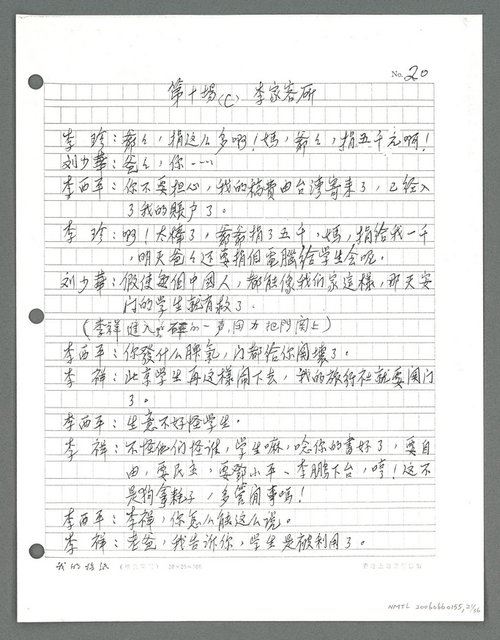 No. 20
第十場(C) 李家客所
李 珍：爺々，捐这么多啊！媽，爺々，捐五千元啊！
刘少華：爸々，你……
李西平：你不要担心，我的稿費由台灣寄来了，已經入
了我的賬户了。
李 珍：啊！太棒了，爺爺捐了五千，媽，捐給我一千
，明天爸々还要捐個電腦給学生会呢。
刘少華：假使每個中国人，都能像我们家這樣，那天安
门的学生就有救了。
（李祥進入 砰的一声，用力把门関上）
李西平：你發什么脾氣，门都给你関壞了。
李 祥：北京学生再这樣闹下去，我的旅行社就要関门
了。
李西平：生意不好怪学生。
李 祥：不怪他们怪谁，学生嘛，唸你的書好了，要自
由，要民主，要鄧小平、李鹏下台，哼！这不
是狗拿耗子，多管闲事吗！
李西平：李祥，你怎么能这么说。
李 祥：老爸，我告诉你，学生是被利用了。
NMTL 20060660155, 21/36